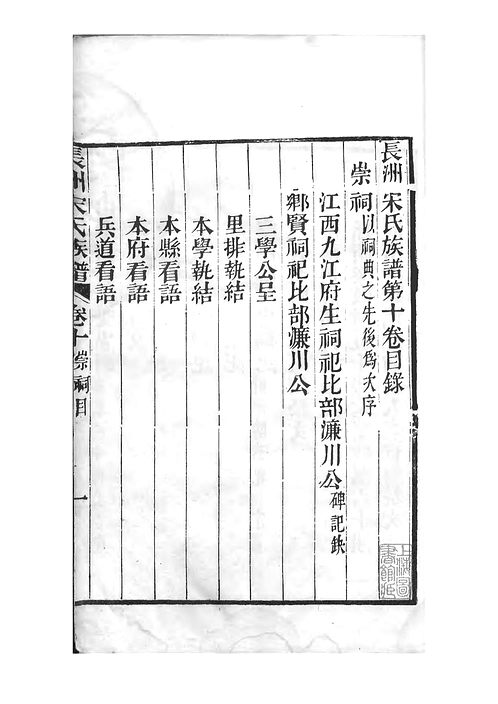 長洲宋氏族譜第十卷目錄
崇祠以祠典之先後爲次序
江西九江府生祠祀比部濂川公碑記缺
鄉賢祠祀比部濂川公
三學公呈
里排執結
本學執結
本縣看語
本府看語
兵道看語
長洲宋氏族譜 卷十 崇祠目 一
上海圖書館藏